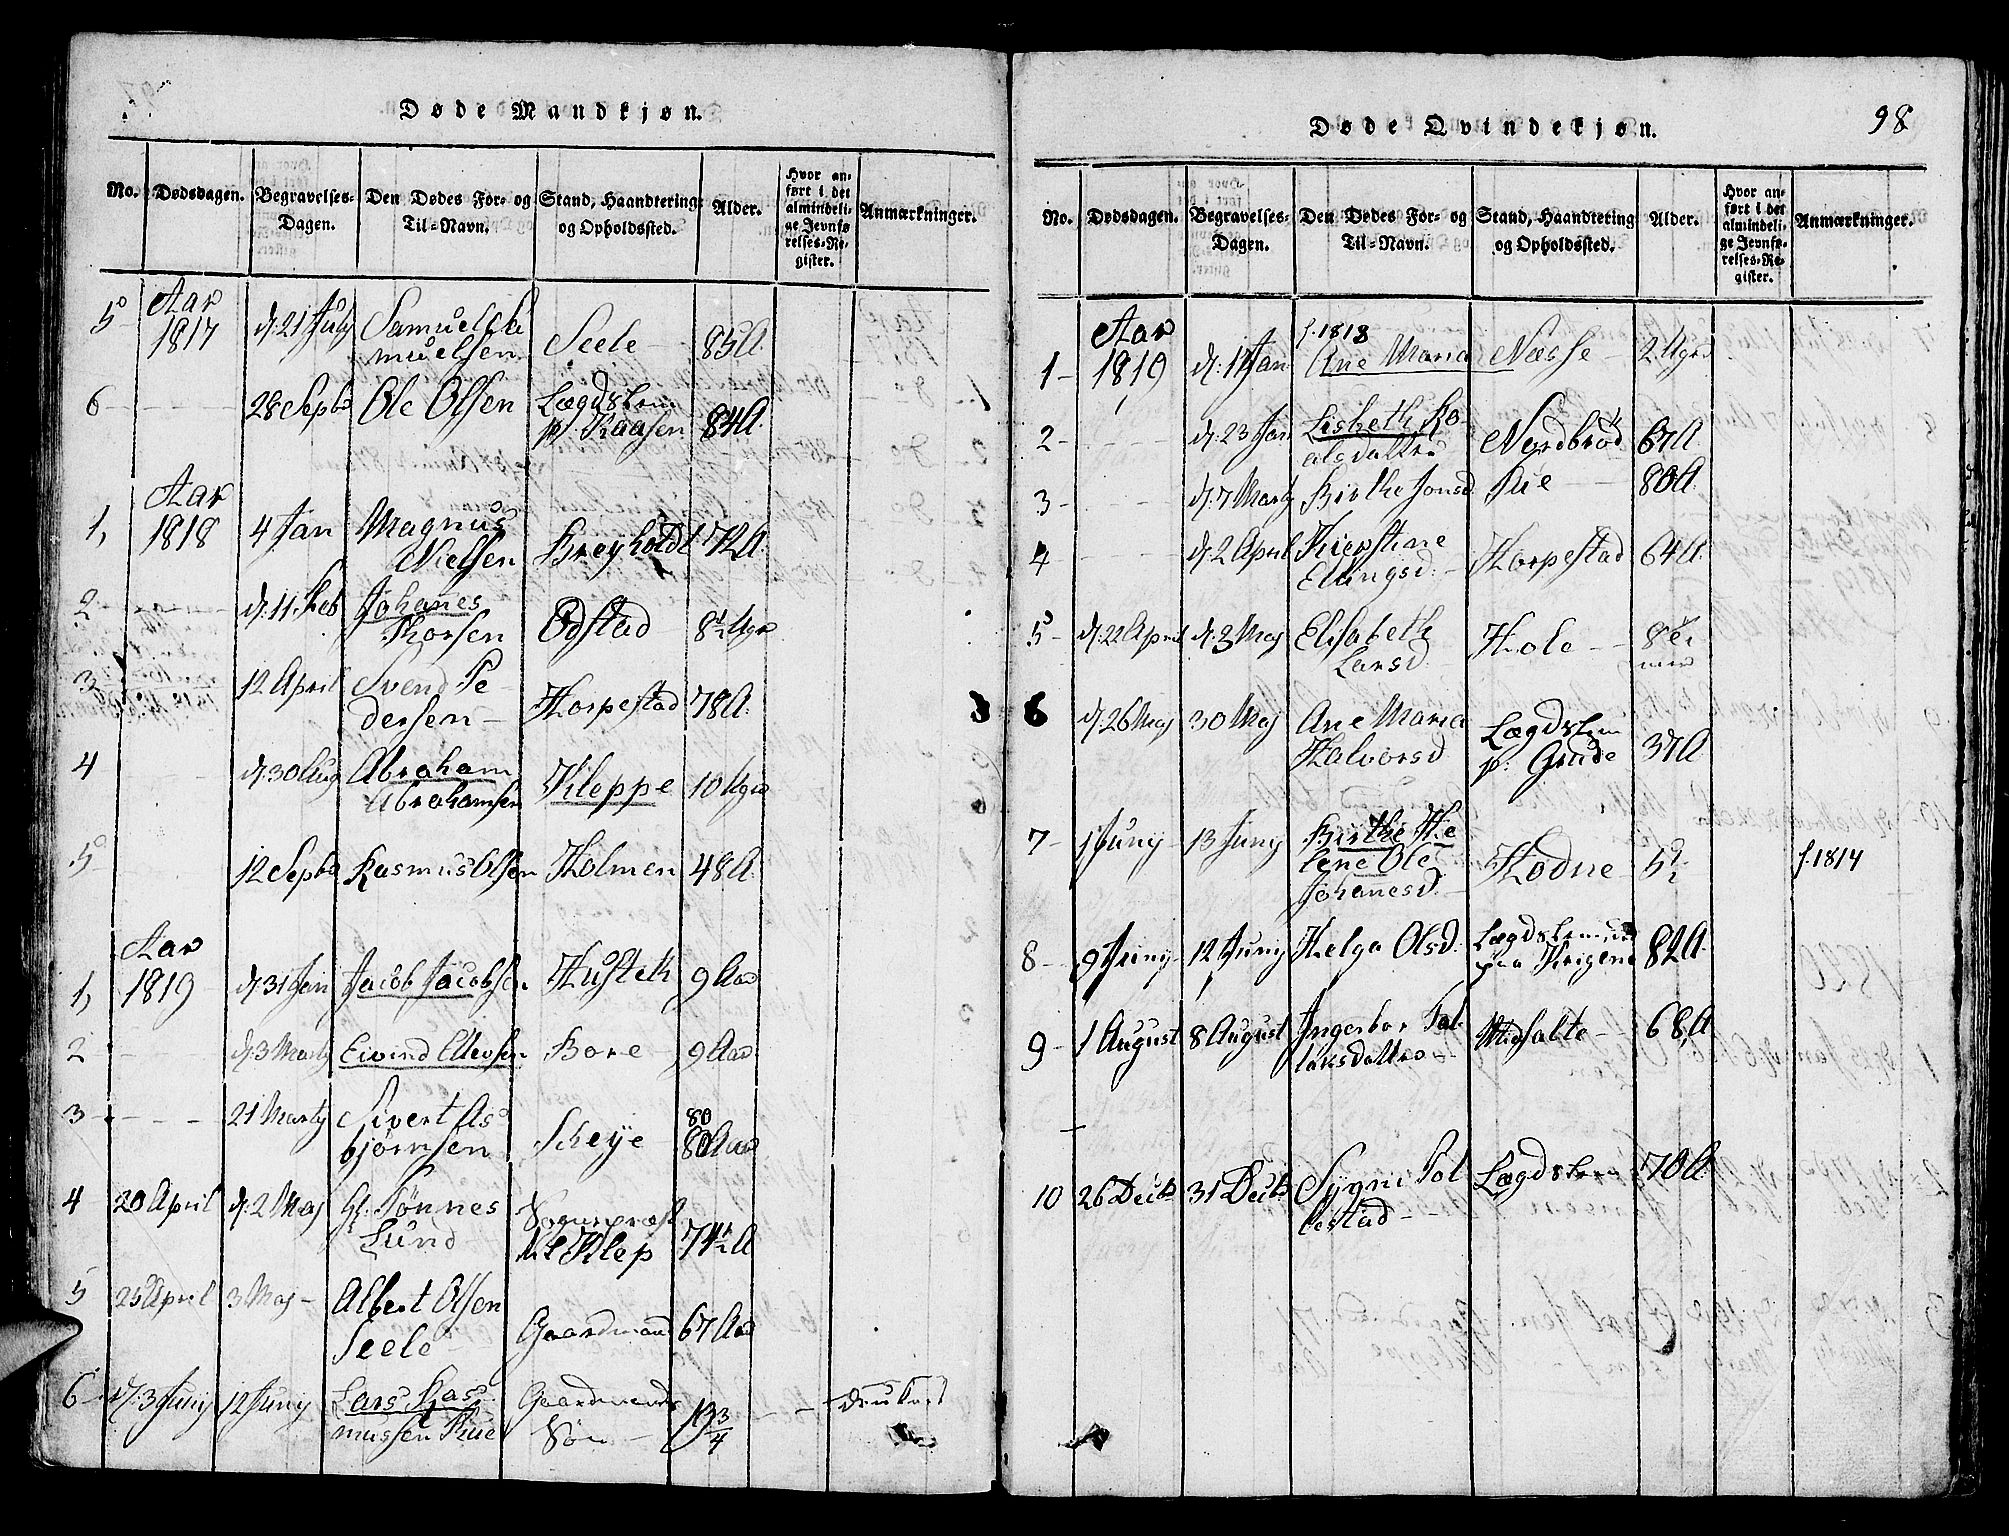 Døde Mandkjøn.
No. Dødsdagen. Begravelses-Dagen. Den Dødes For- og Til-Navn. Stand, Haandtering og Opholdssted. Alder. Hvor anført i det almindelige Jevnførelses-Register. Anmærkninger.
5 Aar 1817 d. 21 July Samuel Samuelsen Seele 85 A.
6 28 Septb Ole Olsen Lægdslem p. Kaasen 84 A.
Aar
1, 1818 4 Jan Magnus Nielsen Breyholdt 72 A.
2 d. 11 Feb Johanes Thorsen Odstad 8 1/2 Uger
3 12 April Svend Pedersen Horpestad 78 A.
4 d. 30 Aug Abraham Abrahamsen Kleppe 10 Uger
5 12 Septb Rasmus Olsen Holmen 48 A.
Aar
1, 1819 d. 31 Jan Jacob Jacobsen Hustek 9 Aar
2 d. 3 Marty Eivind Ellevsen Bore 9 Aar
3 21 Marty Sivert Asbjørnsen Scheye 80 80 Aar
4 20 April d. 2 Maj Hr. Tønnes Lund Sognepræst til Klep 74 1/2 A
5 25 April 3 Maj Albert Olsen Seele Gaardmand 67 Aar
6 d. 3 Juny 12 Juny Lars Rasmussen Rue Gaardmands Søn 13 3/4 druknet
98
Døde Qvindekjøn.
No. Dødsdagen. Begravelses-Dagen. Den Dødes For- og Til-Navn. Stand, Haandtering og Opholdssted. Alder. Hvor anført i det almindelige Jevnførelses-Register. Anmærkninger.
Aar f. 1818
1 1819 d. 17 Jan Ane Maria Næsse 2 Uger
2 d. 23 Jan Lisbeth Roalsdatter Nordbrød 67 A
3 d. 7 Marty Birthe Jonsd Rue 80 A.
4 d. 2 April Kierstine Ellingsd. Horpestad 64 A.
5 d. 22 April d. 3 Maj Elisabeth Larsd. Hole 8
6 d. 26 Maj 30 Maj Ane Maria Halvorsd Lægdslem p. Grude 37 A
7 1 Juny 13 Juny Birthe Helene Ole Johanesd. Hodne 5 1/2 f. 1814
8 9 Juny 12 Juny Helga Olsd. Lægdslem paa 82 A.
9 1 August 8 August Ingerbor Tollaksdatter 68 A
10 26 Decb 31 Decb Sygni Tollestad Lægdslem 70 A